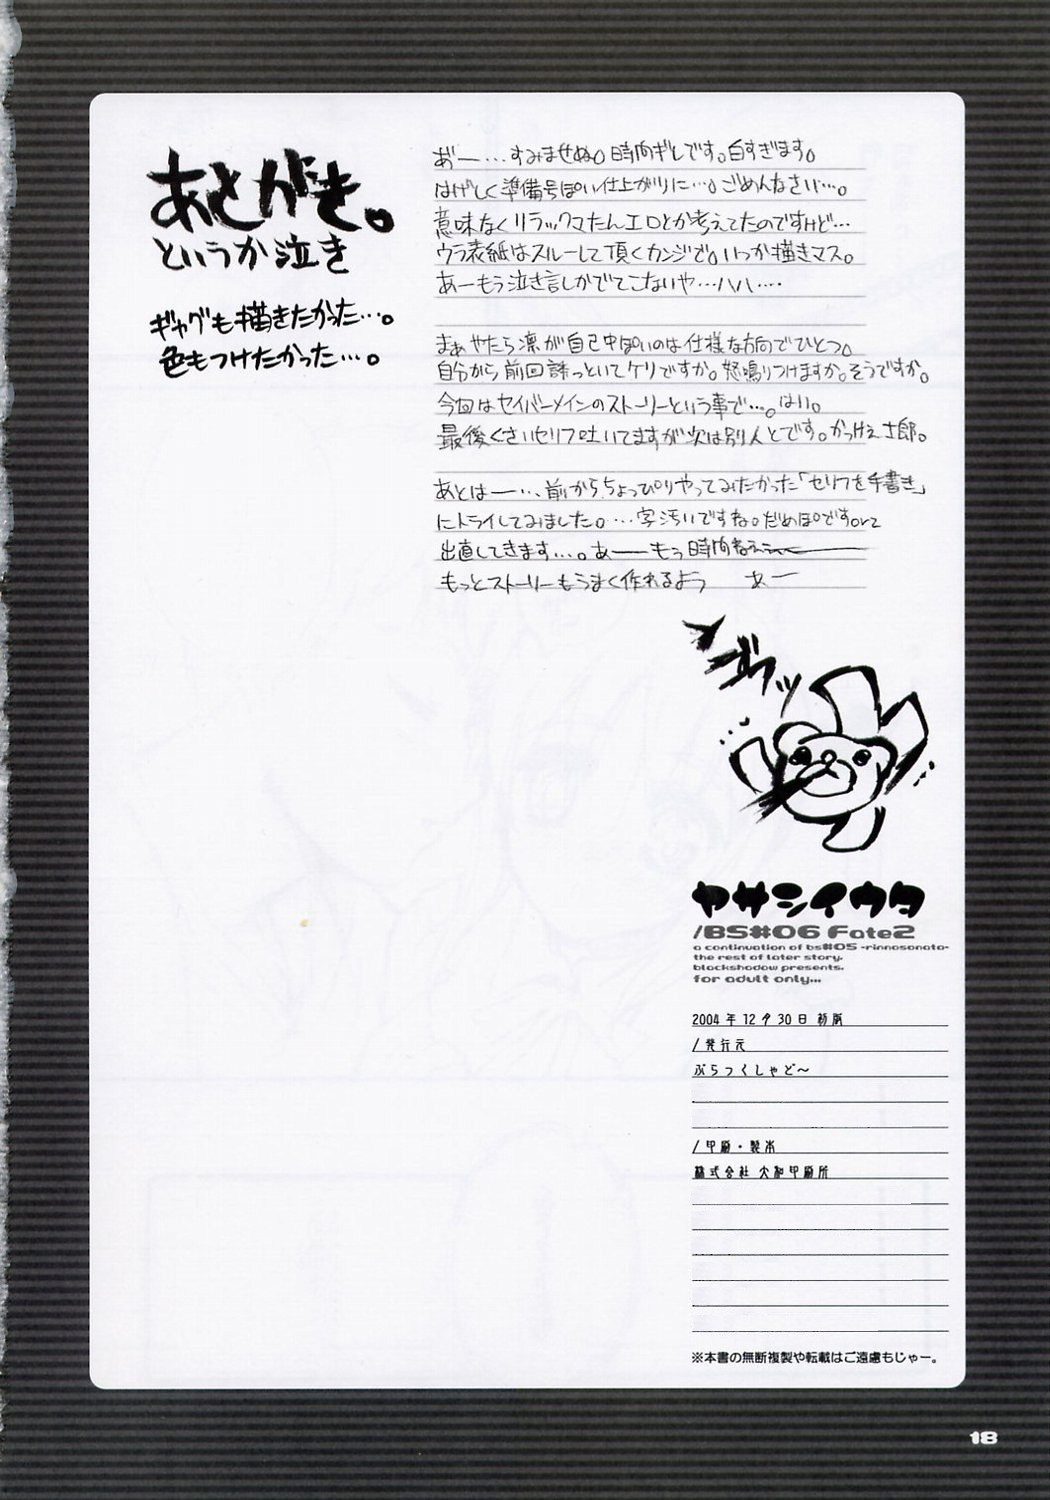 あとがき。
というか泣き
ギャグも描きたかった…。
色もつけたかった…。
あ゛ー…すみませぬ。時間ギレです。白すぎます。
はげしく準備号ぽい仕上がりに…。ごめんなさい…。
意味なくリラックマたんエロとか考えてたのですけど…
ウラ表紙はスルーして頂くカンジで。いつか描きマス。
あーもう泣き言しかでてこないや…ハハ‥‥
まぁやたら凛が自己中ぽいのは仕様な方向でひとつ。
自分から前回誘っといてケリですか。怒鳴りつけますか。そうですか。
今回はセイバーメインのストーリーという事で…。はい。
最後くさいセリフ吐いてますが次は別人とです。かっけぇ士郎。
あとはー…、前からちょっぴりやってみたかった「セリフを手書き」
にトライしてみました。‥‥字汚いですね。だめぽですorz
出直してきます…。あーーもう時間ねぇぇ
もっとストーリーもうまく作れるよう あー
ヤサシイウタ
/BS#06 Fate2
a continuation of bs#05 -rinnosonata-
the rest of later story.
blackshadow presents.
for adult only...
2004年12月30日 初版
/発行元
ぶらっくしゃど〜
/印刷・製本
株式会社 大和印刷所
※本書の無断複製や転載はご遠慮もじゃー。
18